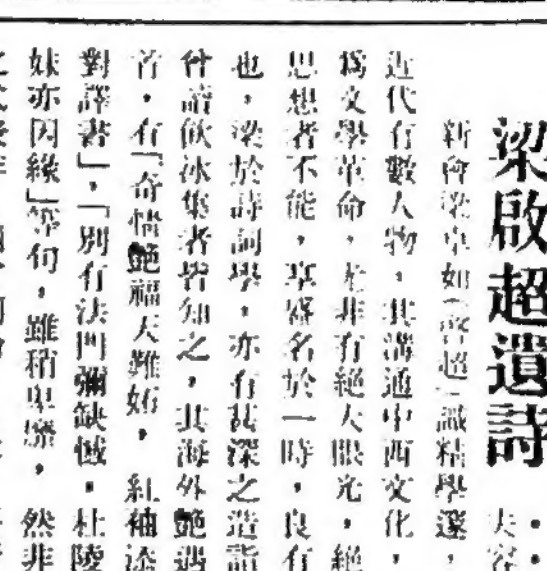 梁啟超遺詩
新會梁卓如(啟超)識精學邃，
近代有數人物，其溝通中西文化，
為文學革命，尤非有絕大眼光，絕
思想者不能，享盛名於一時，良有
也，梁於詩詞學，亦有甚深之造詣
曾讀飲冰集者皆知之，其海外艷遇
者，有「奇情艷福天難妬，紅袖添
對譯書」，「別有法門彌缺憾，杜陵
妹亦因緣」等句，雖稍卑靡，然非